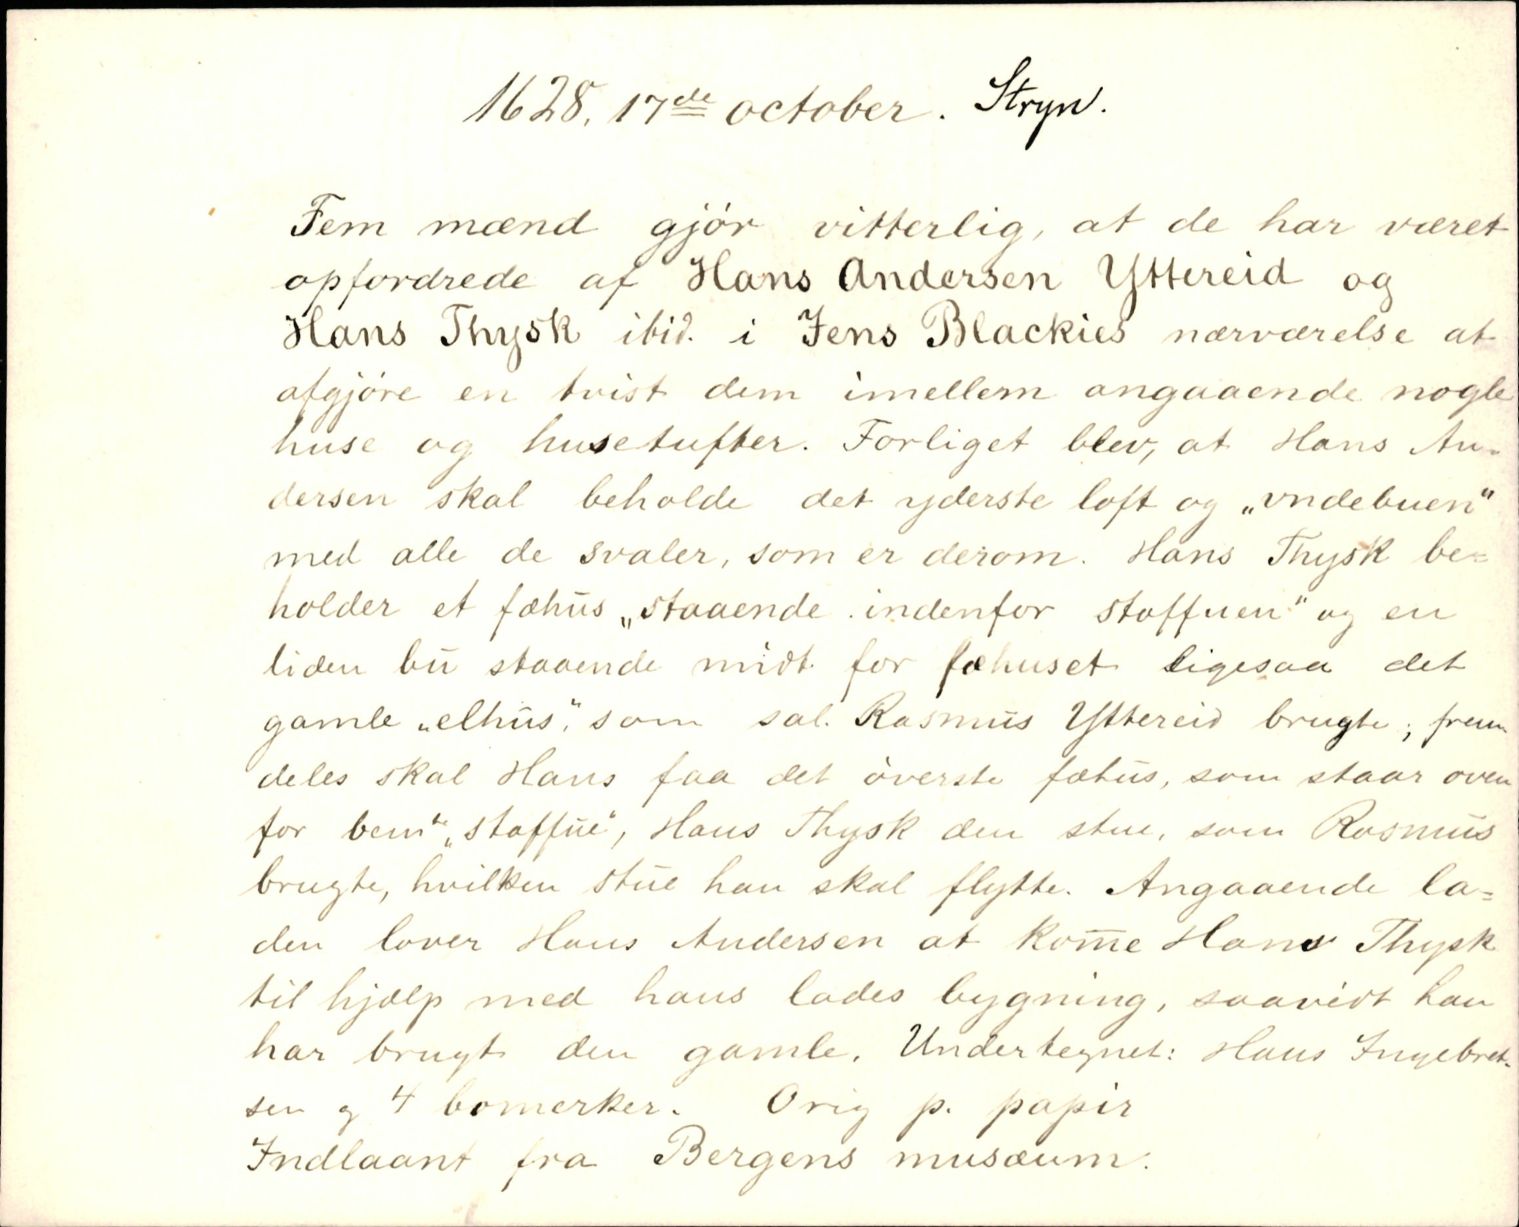 1628. 17de october. Stryn.
Fem mænd gjör vitterlig, at de har været
opfordrede af Hans Andersen Yttereid og
Hans Thysk ibid. i Jens Blackies nærværelse at
afgjöre en tvist dem imellem angaaende nogle
huse og husetufter. Forliget blev, at Hans An-
dersen skal beholde det yderste loft og „vndebuen"
med alle de svaler, som er derom. Hans Thysk be=
holder et fæhus „staaende indenfor stoffuen" og en
liden bu staaende midt for fæhuset ligesaa det
gamle „elhus", som sal. Rasmus Yttereid brugte; frem
deles skal Hans faa det överste fæhus, som staar oven
for bemte „stoffue", Hans Thysk den stue, som Rasmus
brugte, hvilken stue han skal flytte. Angaaende la=
den lover Hans Andersen at kom̄e Hans Thysk
til hjælp med hans lades bygning, saavidt han
har brugt den gamle. Undertegnet: Hans Ingebret-
sen og 4 bomerker. Orig p. papir
Indlaant fra Bergens musæum.